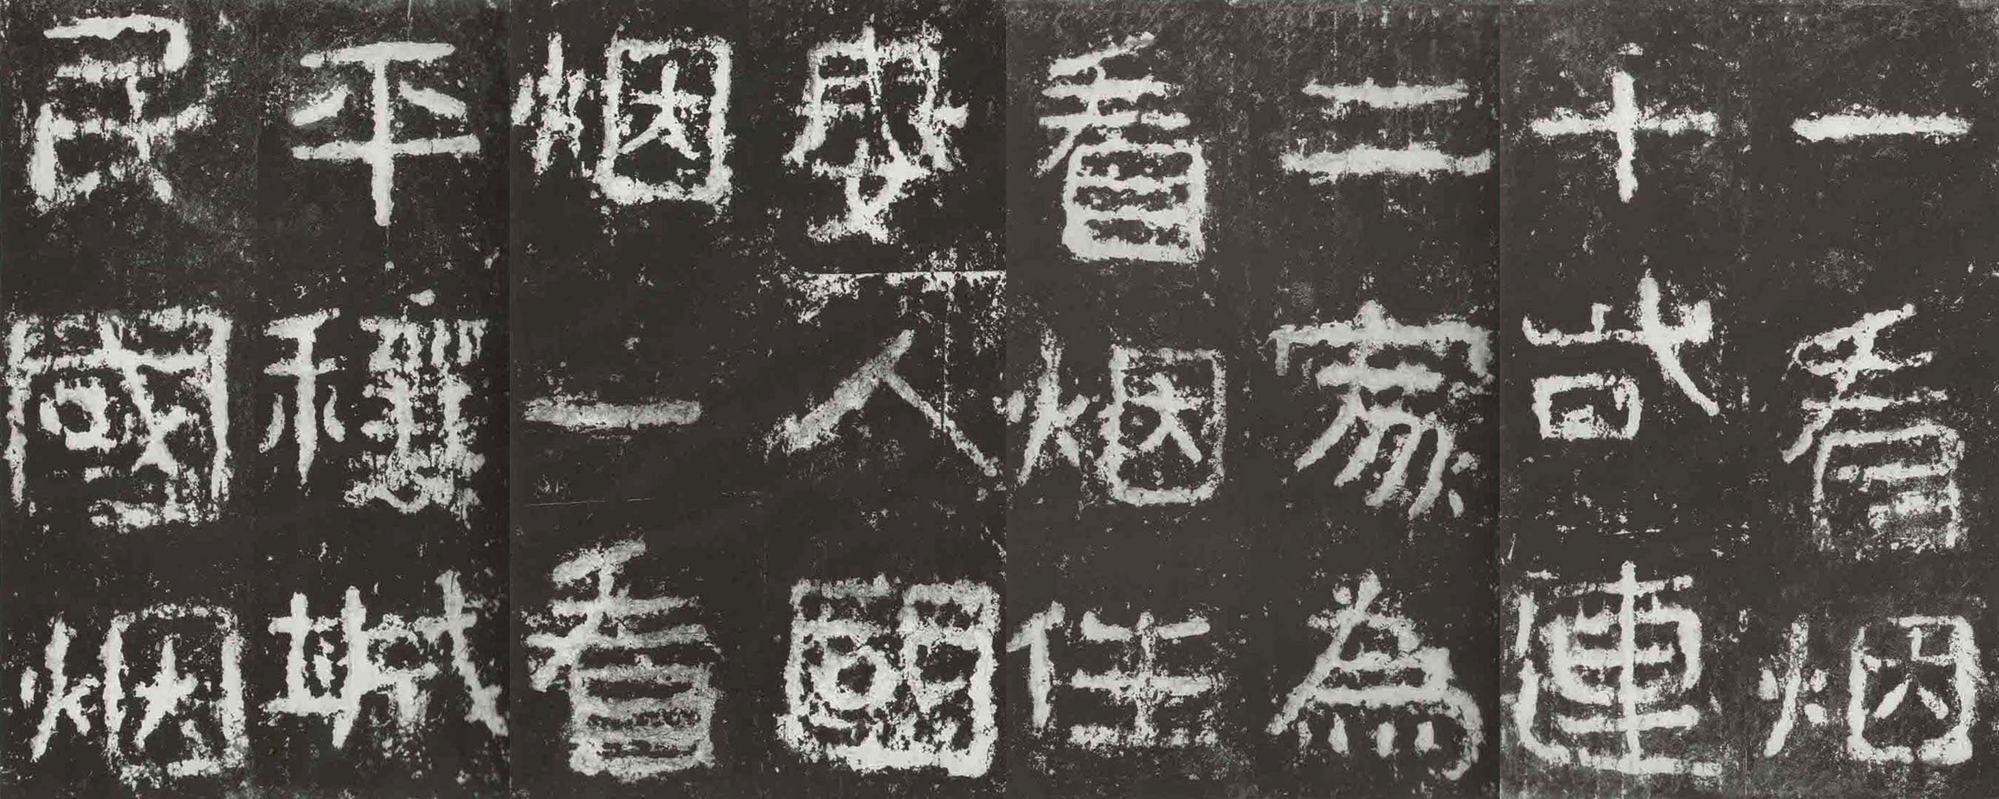 一看烟
十呰連
二家為
看烟住
婁人國
烟一看
平穰城
民國烟